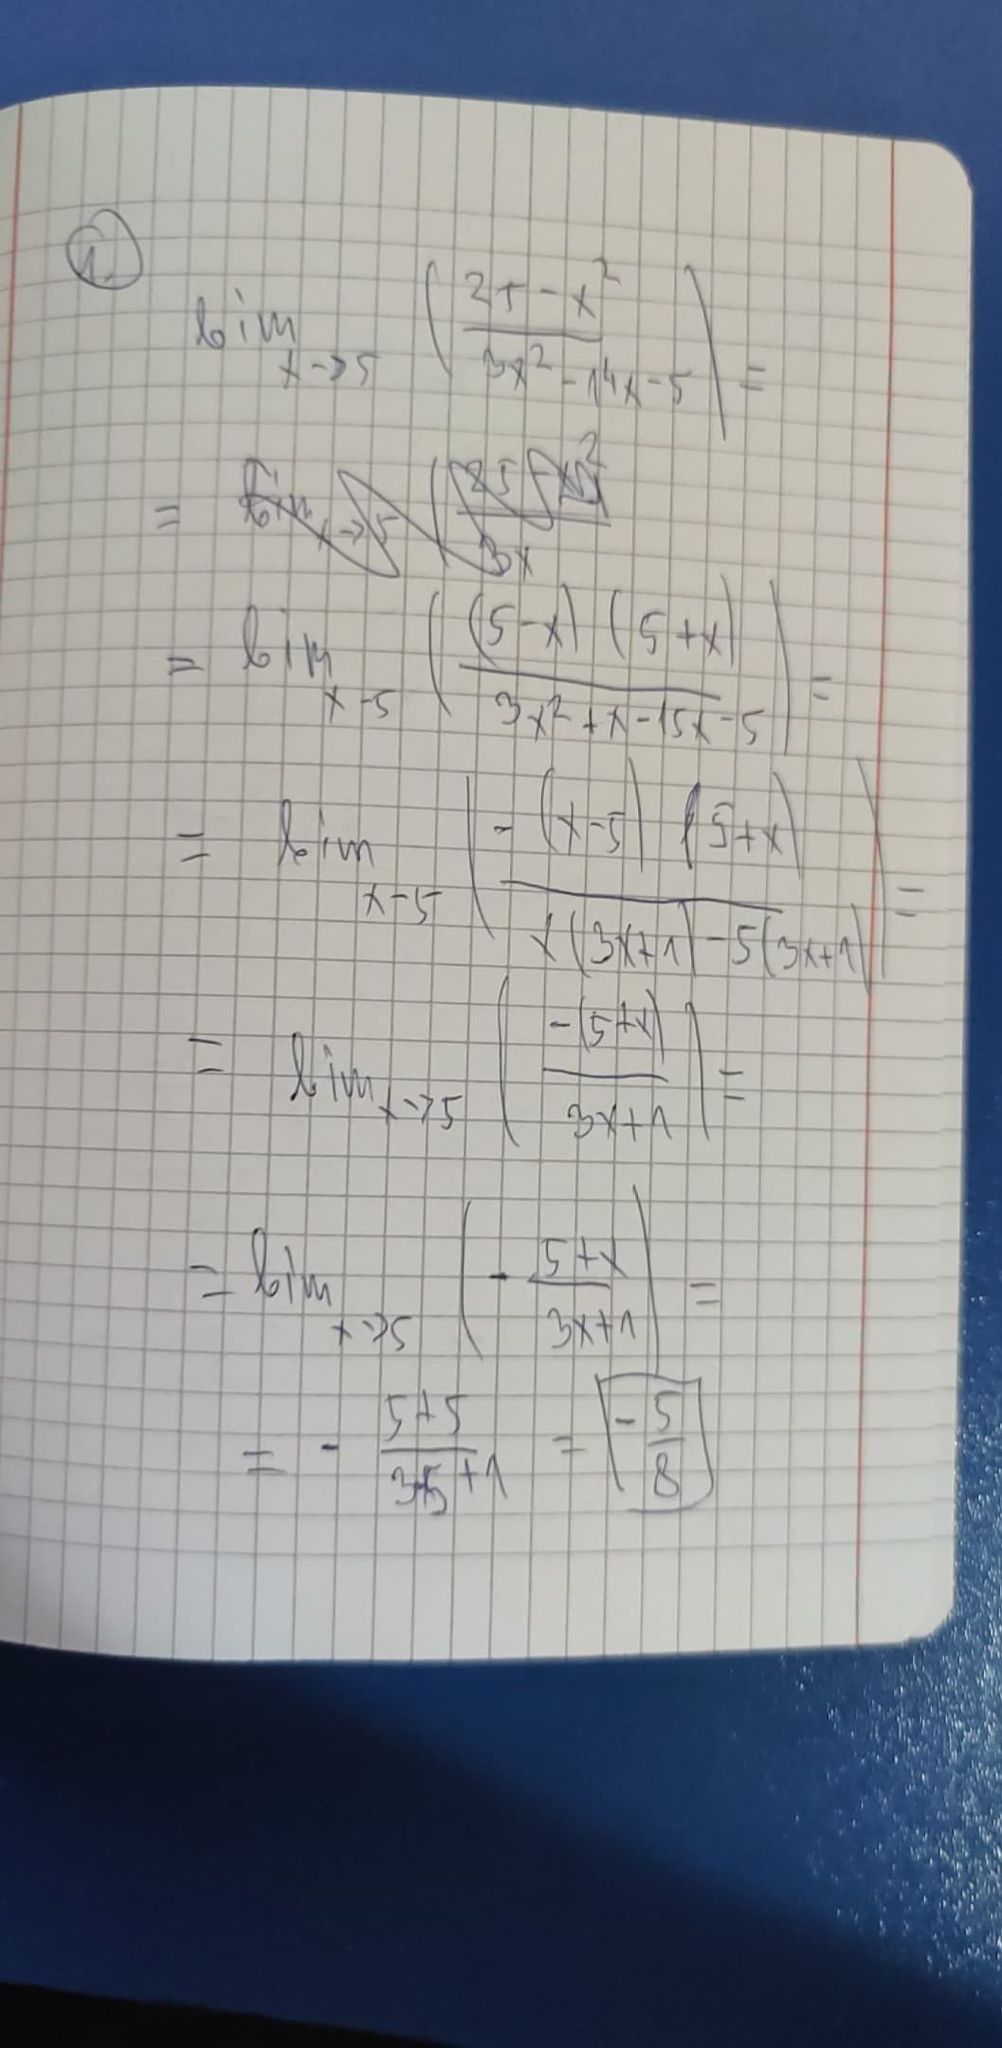 1.
lim x->5 ( (25 - x²) / (3x² - 14x - 5) ) =
= lim x->5 ( (25 - x²) / 3x
= lim x-5 ( (5-x) (5+x) / (3x² + x - 15x - 5) ) =
= lim x-5 ( - (x-5) (5+x) / (x(3x+1) - 5(3x+1)) ) =
= lim x->5 ( -(5+x) / (3x+1) ) =
= lim x->5 ( - (5+x) / (3x+1) ) =
= - (5+5) / (3·5+1) = - 5/8